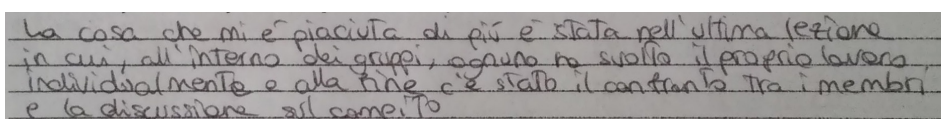 La cosa che mi è piaciuta di più è stata nell'ultima lezione
in cui, all'interno dei gruppi, ognuno ha svolto il proprio lavoro,
individualmente e alla fine c'è stato il confronto tra i membri
e la discussione sul compito